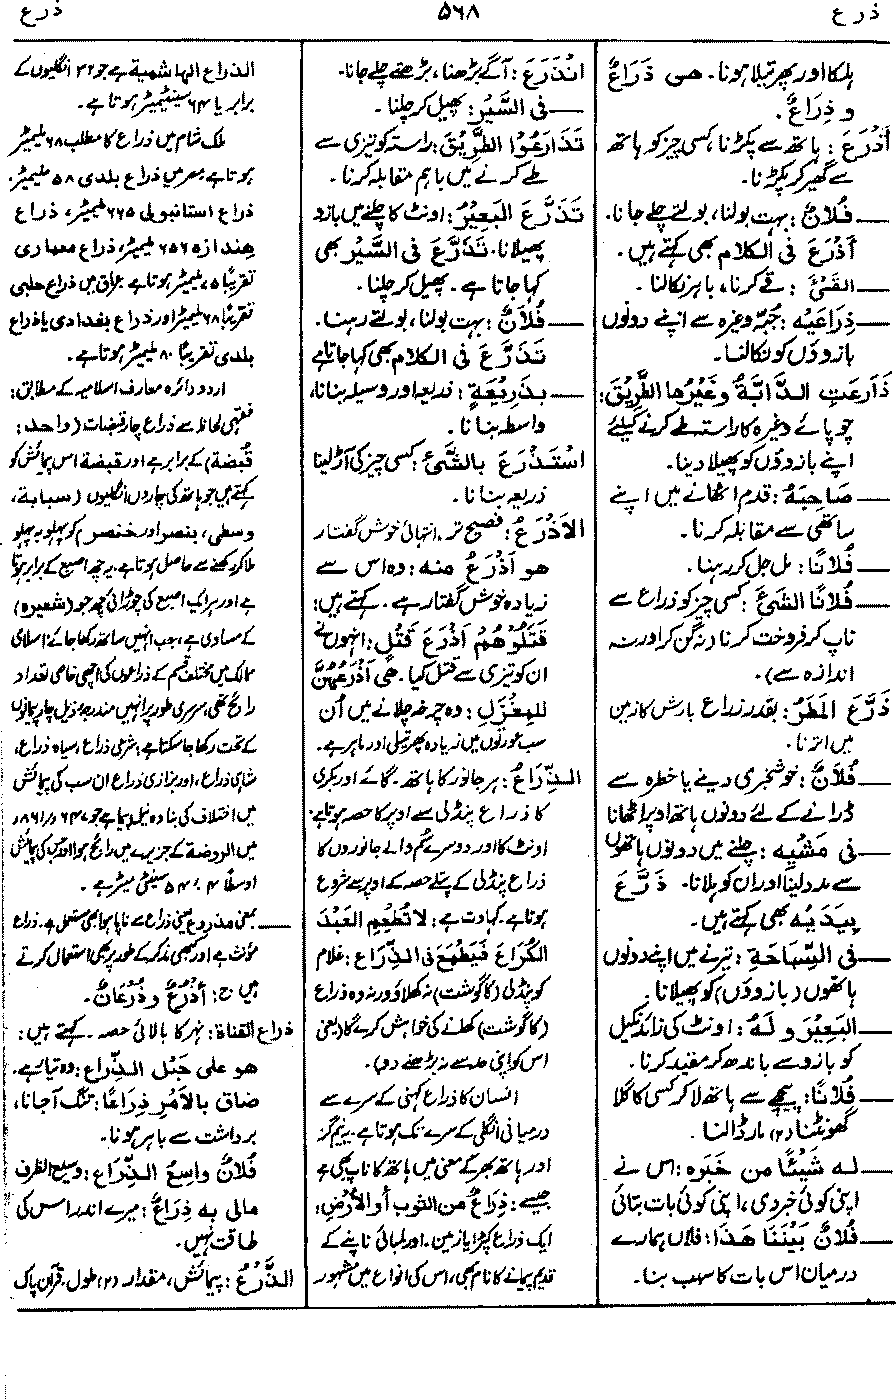 ذ ر ع
۵۶۸
ذ ر ع
ہلکا اور پھرتیلا ہونا۔ هي ذَرَاعٌ
و ذِرَاعٌ۔
أَذْرَعَ : ہاتھ سے پکڑنا، کسی چیز کو ہاتھ
سے گھیر کر پکڑنا۔
— فُلَانٌ : بہت بولنا، بولتے چلے جانا۔
أَذْرَعَ في الكلام بھی کہتے ہیں۔
— القَيْءَ : قے کرنا، باہر نکالنا۔
— ذِرَاعَيْهِ : جبہ وغیرہ سے اپنے دونوں
بازوؤں کو نکالنا۔
ذَارَعَتِ الدَّابَّةُ وغَيْرُها الطَّرِيقَ :
چوپائے وغیرہ کا راستہ طے کرنے کیلئے
اپنے بازوؤں کو پھیلا دینا۔
— صَاحِبَهُ : قدم اٹھانے میں اپنے
ساتھی سے مقابلہ کرنا۔
— فُلَانًا : مل جل کر رہنا۔
— فُلَانًا الشَّيْءَ : کسی چیز کو ذراع سے
ناپ کر فروخت کرنا (نہ گن کر اور نہ
اندازہ سے)۔
ذَرَّعَ المَطَرُ : بقدر ذراع بارش کا زمین
میں اترنا۔
— فُلَانٌ : خوشخبری دینے یا خطرہ سے
ڈرانے کے لئے دونوں ہاتھ اوپر اٹھانا
— في مَشْيِهِ : چلنے میں دونوں ہاتھوں
سے مدد لینا اور ان کو ہلانا۔ ذَرَّعَ
بِيَدَيْهِ بھی کہتے ہیں۔
— في السِّبَاحَةِ : تیرنے میں اپنے دونوں
ہاتھوں (بازوؤں) کو پھیلانا۔
— البَعِيرَ و لَهُ : اونٹ کی زائد نکیل
کو بازو سے باندھ کر مقید کرنا۔
— فُلَانًا : پیچھے سے ہاتھ لا کر کسی کا گلا
گھونٹنا (۲) مار ڈالنا۔
— له شَيْئًا من خَبَرِه : اس نے
اپنی کوئی خبر دی، اپنی کوئی بات بتائی
— فُلَانٌ بَيْنَنَا هَذَا : فلاں ہمارے
درمیان اس بات کا سبب بنا۔
انْذَرَعَ : آگے بڑھنا، بڑھتے چلے جانا۔
— في السَّيْرِ : پھیل کر چلنا۔
تَذَارَعُوا الطَّرِيقَ : راستہ کو تیزی سے
طے کرنے میں باہم مقابلہ کرنا۔
تَذَرَّعَ البَعِيرُ : اونٹ کا چلنے میں بازو
پھیلانا۔ تَذَرَّعَ في السَّيْرِ بھی
کہا جاتا ہے۔ پھیل کر چلنا۔
— فُلَانٌ : بہت بولنا، بولتے رہنا۔
تَذَرَّعَ في الكلام بھی کہا جاتا ہے
— بِذَرِيعَةٍ : ذریعہ اور وسیلہ بنانا،
واسطہ بنانا۔
اسْتَذْرَعَ بالشَّيْءِ : کسی چیز کی آڑ لینا
ذریعہ بنانا۔
الأَذْرَعُ : فصیح تر، انتہائی خوش گفتار
هو أَذْرَعُ منه : وہ اس سے
زیادہ خوش گفتار ہے۔ کہتے ہیں :
قَتَلُوهُمْ أَذْرَعَ قَتْلٍ : انہوں نے
ان کو تیزی سے قتل کیا۔ هي أَذْرَعُهُنَّ
للمِغْزَلِ : وہ چرخہ چلانے میں اُن
سب عورتوں میں زیادہ پھرتیلی اور ماہر ہے۔
الذِّرَاعُ : ہر جانور کا ہاتھ۔ گائے اور بکری
کا ذراع پنڈلی سے اوپر کا حصہ ہوتا ہے
اونٹ کا اور دوسرے سُم والے جانوروں کا
ذراع پنڈلی کے پتلے حصہ کے اوپر سے شروع
ہوتا ہے۔ کہاوت ہے : لَا تُطْعِمِ العَبْدَ
الكُرَاعَ فَيَطْمَعَ في الذِّرَاعِ : غلام
کو پنڈلی (کا گوشت) نہ کھلاؤ ورنہ وہ ذراع
(کا گوشت) کھانے کی خواہش کرے گا (یعنی
اس کو اپنی حد سے نہ بڑھنے دو)۔
انسان کا ذراع کہنی کے سرے سے
درمیانی انگلی کے سرے تک ہوتا ہے۔ یہ نیم گز
اور ہاتھ بھر کے معنی میں ہاتھ کا ناپ بھی ہے
جیسے : ذِرَاعٌ من الثوب أو الأرْضِ :
ایک ذراع کپڑا یا زمین۔ اور لمبائی ناپنے کے
قدیم پیمانے کا نام بھی، اس کی انواع میں مشہور
الذراع الهاشمية ہے جو ۳۲ انگلیوں کے
برابر یا ۶۴ سینٹیمیٹر ہوتا ہے۔
ملک شام میں ذراع کا مطلب ۶۸ ملیمیٹر
ہوتا ہے، مصر میں ذراع بلدی ۵۸ ملیمیٹر،
ذراع استانبولی ۶۶۵ ملیمیٹر، ذراع
هندازه ۶۵۶ ملیمیٹر، ذراع معماری
تقریباً ۷۵ ملیمیٹر ہوتا ہے۔ عراق میں ذراع حلبی
تقریباً ۶۸ ملیمیٹر اور ذراع بغدادی یا ذراع
بلدی تقریباً ۸۰ ملیمیٹر ہوتا ہے۔
اردو دائرہ معارف اسلامیہ کے مطابق :
فقہی لحاظ سے ذراع چار قبضات (واحد :
قُبضة) کے برابر ہے اور قبضة اس پیمائش کو
کہتے ہیں جو ہاتھ کی چاروں انگلیوں (سبابة،
وسطی، بنصر اور خنصر) کو پہلو بہ پہلو
ملا کر رکھنے سے حاصل ہوتا ہے۔ یہ چھ اصبع کے برابر ہوتا
ہے اور ہر ایک اصبع کی چوڑائی چھ جو (شعیرہ)
کے مساوی ہے، جب انہیں ساتھ رکھا جائے۔ اسلامی
ممالک میں مختلف قسم کے ذراعوں کی اچھی خاصی تعداد
رائج تھی، سرسری طور پر انہیں مندرجہ ذیل چار پیمانوں
کے تحت رکھا جا سکتا ہے : شرعی ذراع، سیاہ ذراع،
شاہی ذراع، اور بزازی ذراع ان سب کی پیمائش
میں اختلاف کی بنا وہ نیل پیما ہے جو ۲۴۷ھ / ۸۶۱ء
میں الروضۃ کے جزیرے میں رائج ہوا اور جس کی پیمائش
اوسطاً ۵۴.۰۴ سینٹی میٹر ہے۔
— بمعنی مذروع یعنی ذراع سے ناپا ہوا بھی مستعمل ہے۔ ذراع
مؤنث ہے اور کبھی مذکر کے طور پر بھی استعمال کرتے
ہیں ج : أَذْرُعٌ و ذُرْعَانٌ۔
ذراع القناة : نہر کا بالائی حصہ۔ کہتے ہیں :
هو على حَبْلِ الذِّرَاعِ : وہ تیار ہے۔
ضاق بالأمْرِ ذِرَاعًا : تنگ آجانا،
برداشت سے باہر ہونا۔
فُلَانٌ واسِعُ الذِّرَاعِ : وسیع الظرف
مالي به ذِرَاعٌ : میرے اندر اس کی
طاقت نہیں۔
الذَّرْعُ : پیمائش، مقدار (۲) طول۔ قرآن پاک